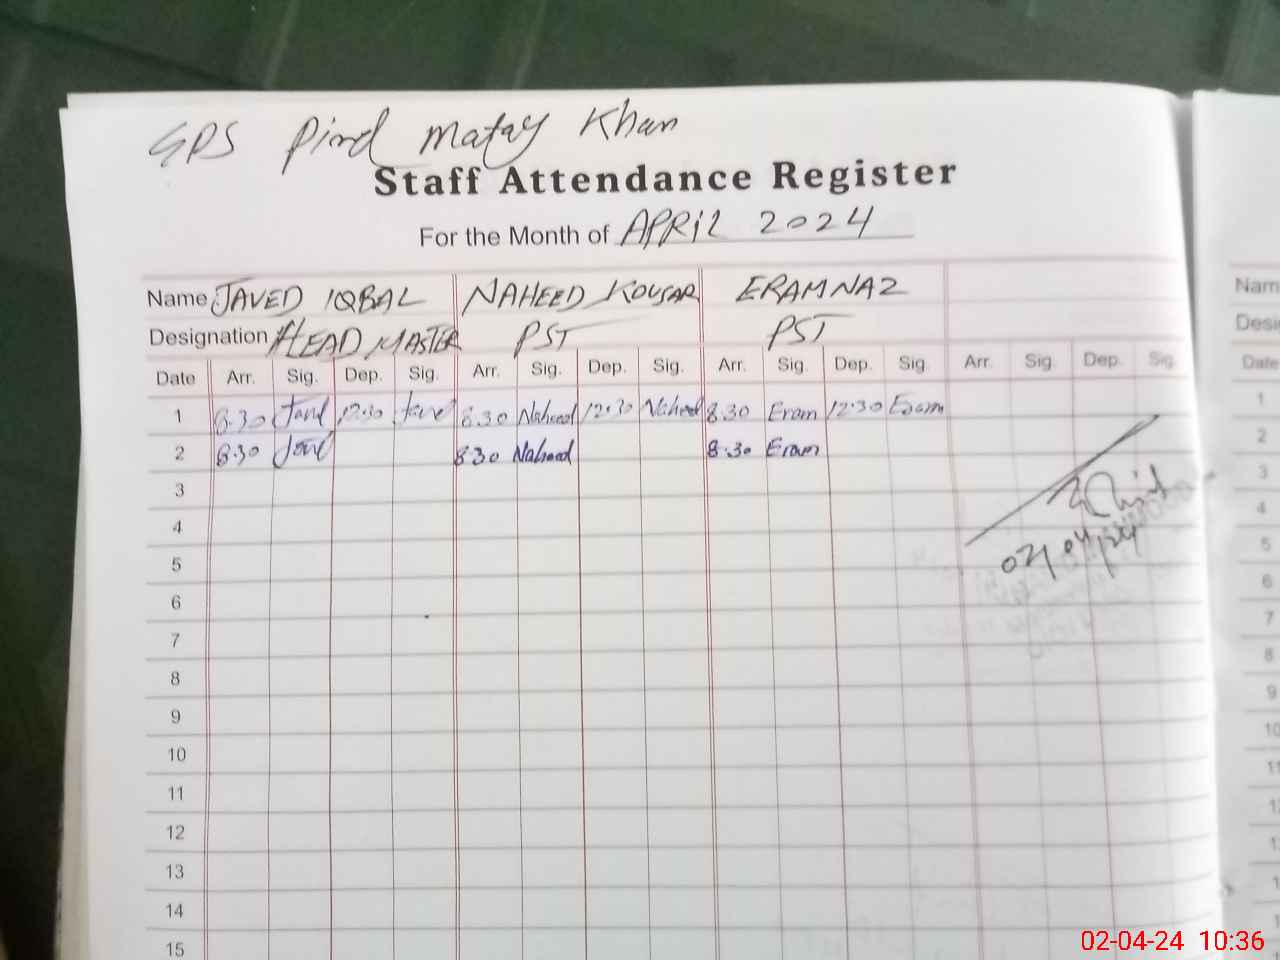 GPS Pind Matay Khan
Staff Attendance Register
For the Month of APRIL 2024
Name JAVED IQBAL NAHEED KOUSAR ERAM NAZ
Designation HEAD MASTER PST PST
Date Arr. Sig. Dep. Sig. Arr. Sig. Dep. Sig. Arr. Sig. Dep. Sig. Arr. Sig. Dep. Sig.
1 8.30 Javed 12:30 Javed 8.30 Naheed 12:30 Naheed 8.30 Eram 12:30 Eram
2 8.30 Javed 8.30 Naheed 8.30 Eram
3
4
5
6
7
8
9
10
11
12
13
14
15
Nam
Desi
Date
1
2
3
4
5
6
7
8
9
10
11
02-04-24 10:36